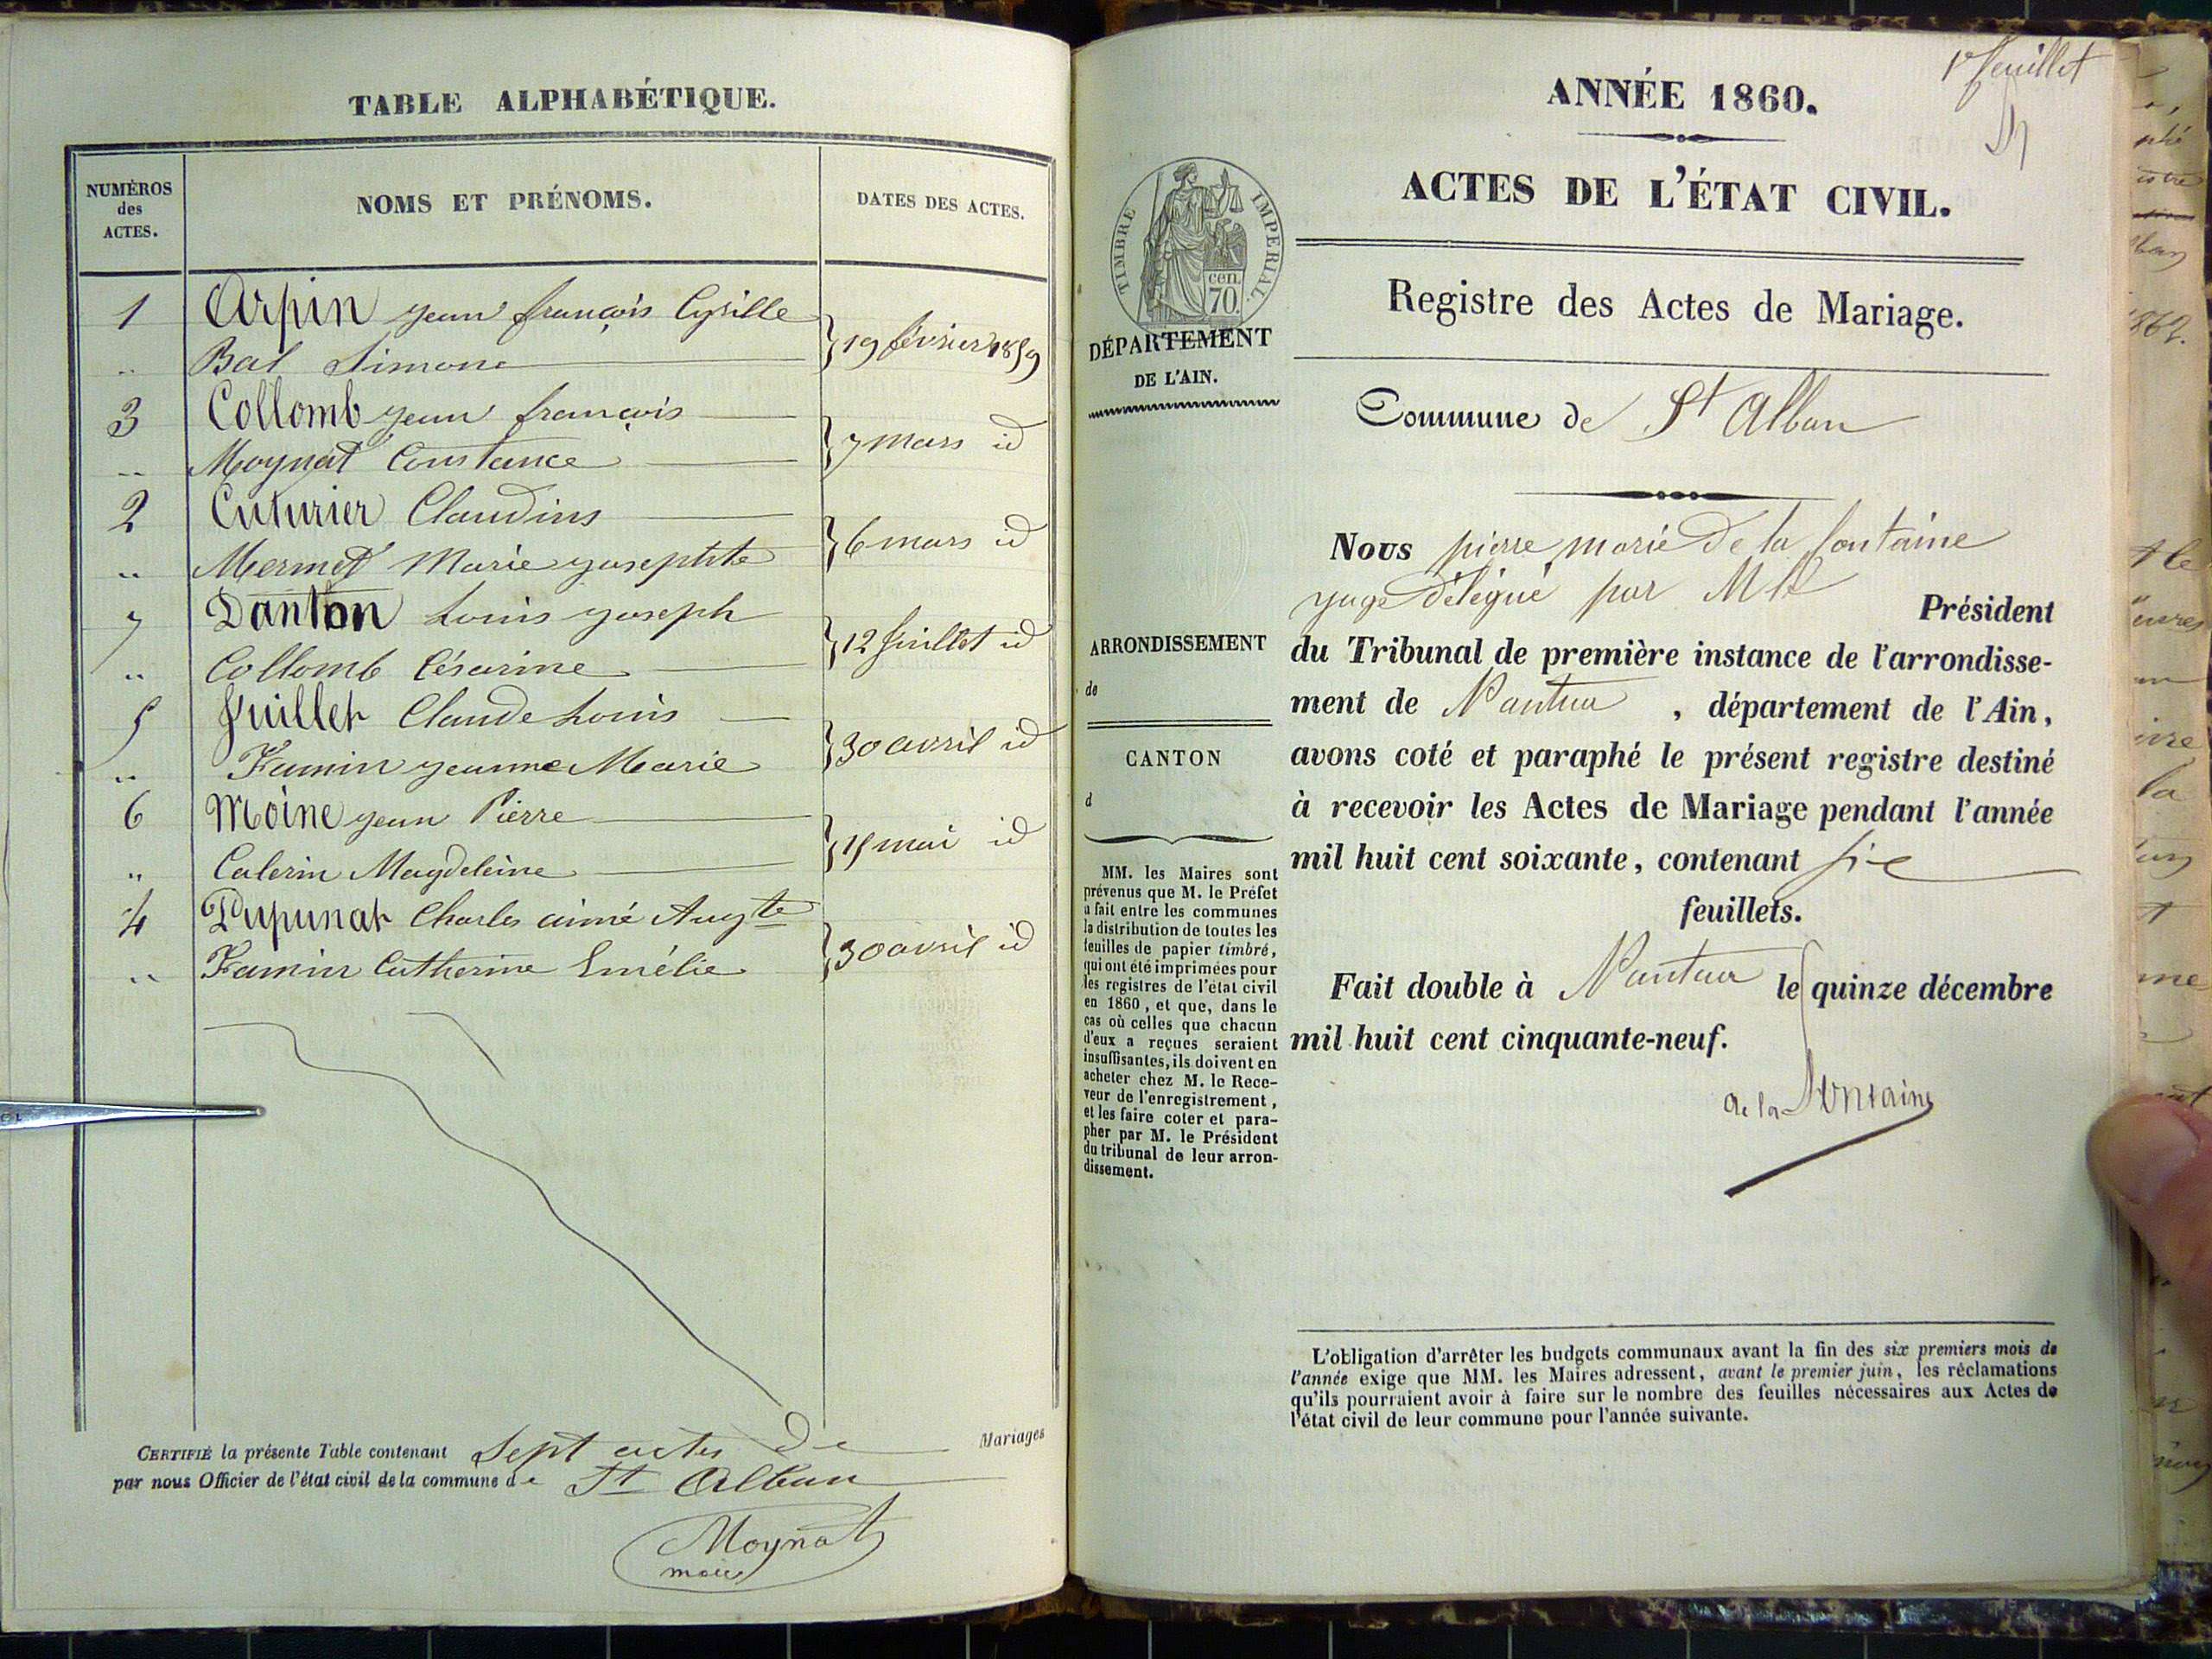 TABLE ALPHABÉTIQUE.
NUMÉROS
des
ACTES.
NOMS ET PRÉNOMS.
DATES DES ACTES.
1 Arpin jean françois Cyrille
19 février 1859
.. Bal Simone
3 Collomb jean françois
7 mars id
.. Moynat Constance
2 Cuturier Claudius
6 mars id
.. Mermet Marie josephte
7 Danton Louis joseph
12 juillet id
.. Collomb Césarine
5 Juillet Claude Louis
30 avril id
.. Famin jeanne Marie
6 Moine jean Pierre
15 mai id
.. Calerin Magdeleine
4 Pupunat Charles aimé Augte
30 avril id
.. Famin Catherine Emélie
CERTIFIÉ la présente Table contenant Sept actes de Mariages
par nous Officier de l'état civil de la commune de St Alban
Moynat
maire
1r feuillet
ANNÉE 1860.
ACTES DE L'ÉTAT CIVIL.
TIMBRE IMPERIAL.
cen.
70.
DÉPARTEMENT
DE L'AIN.
Registre des Actes de Mariage.
Commune de St Alban
Nous pierre marie De la fontaine
juge délégué par Mr le Président
du Tribunal de première instance de l'arrondisse-
ment de Nantua , département de l'Ain,
avons coté et paraphé le présent registre destiné
à recevoir les Actes de Mariage pendant l'année
mil huit cent soixante, contenant six
feuillets.
Fait double à Nantua le quinze décembre
mil huit cent cinquante-neuf.
de la Fontaine
ARRONDISSEMENT
de
CANTON
d
MM. les Maires sont
prévenus que M. le Préfet
a fait entre les communes
la distribution de toutes les
feuilles de papier timbré,
qui ont été imprimées pour
les registres de l'état civil
en 1860, et que, dans le
cas où celles que chacun
d'eux a reçues seraient
insuffisantes, ils doivent en
acheter chez M. le Rece-
veur de l'enregistrement,
et les faire coter et para-
pher par M. le Président
du tribunal de leur arron-
dissement.
L'obligation d'arrêter les budgets communaux avant la fin des six premiers mois de
l'année exige que MM. les Maires adressent, avant le premier juin, les réclamations
qu'ils pourraient avoir à faire sur le nombre des feuilles nécessaires aux Actes de
l'état civil de leur commune pour l'année suivante.